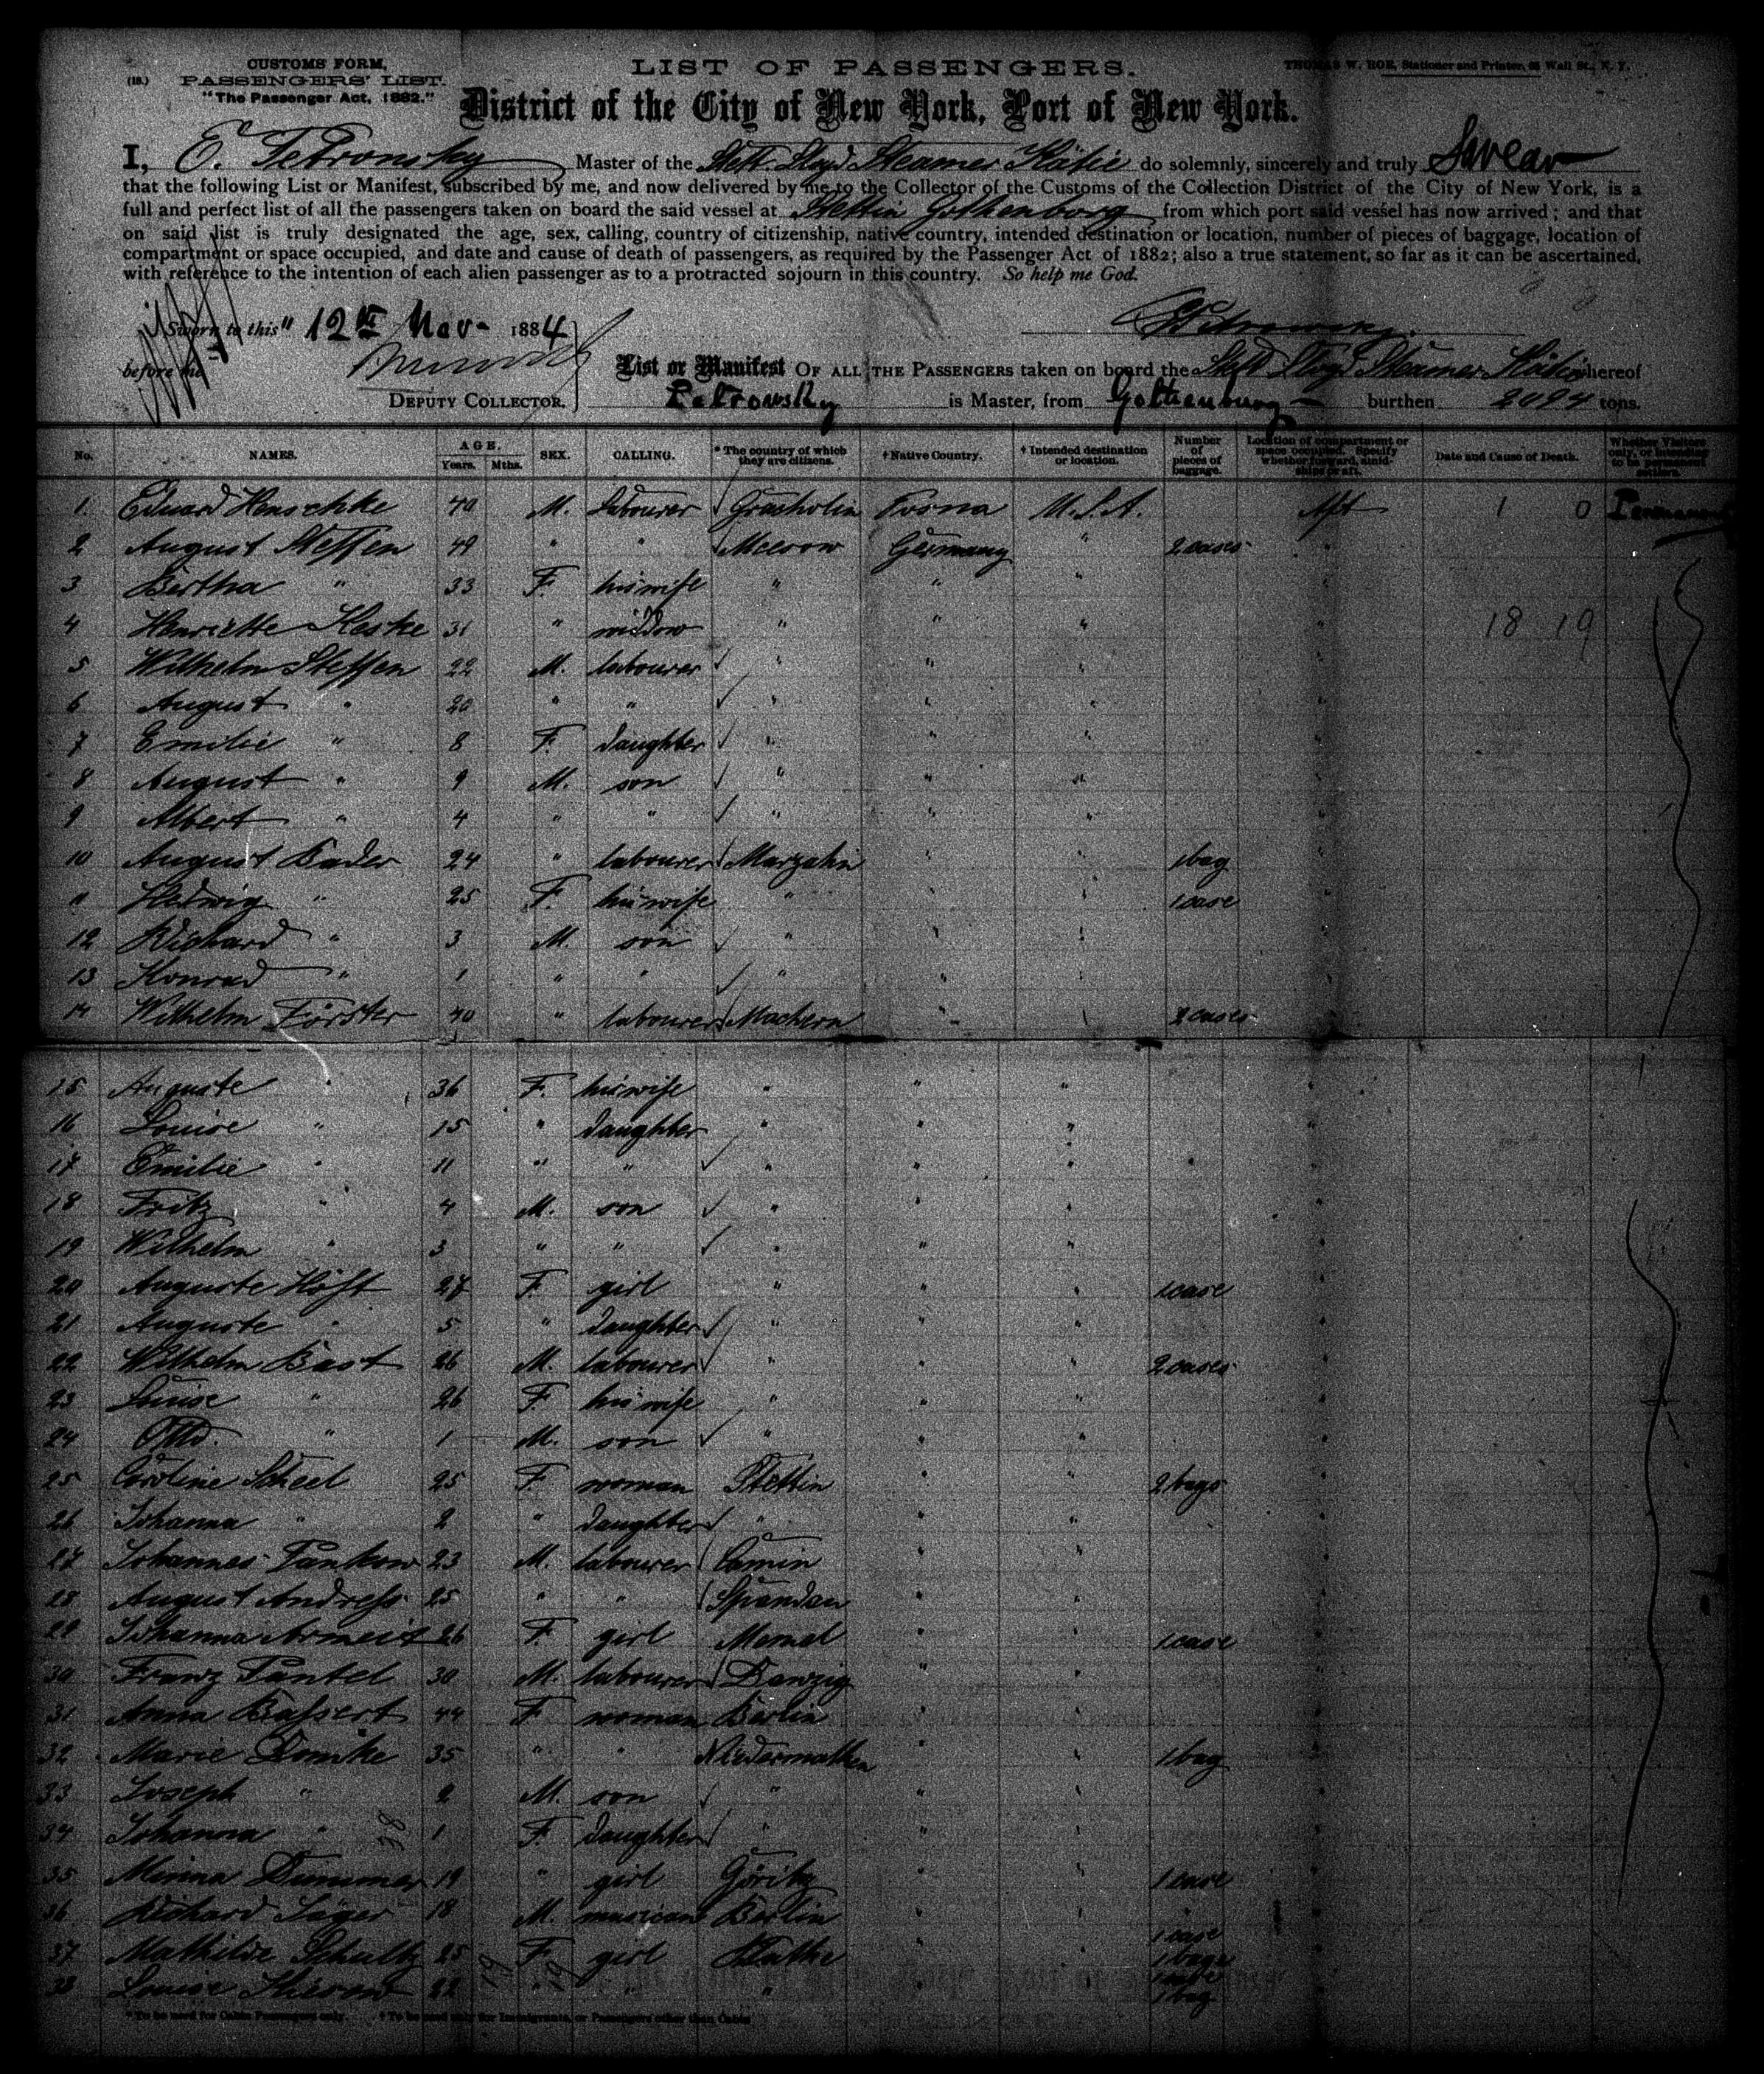 CUSTOMS FORM,
(18.) PASSENGERS' LIST.
"The Passenger Act, 1882."
LIST OF PASSENGERS.
THOMAS W. ROE, Stationer and Printer, Wall St., N. Y.
District of the City of New York, Port of New York.
I, E. Petronsky Master of the Stett. Lloyd Steamer Kätie do solemnly, sincerely and truly Swear
that the following List or Manifest, subscribed by me, and now delivered by me to the Collector of the Customs of the Collection District of the City of New York, is a
full and perfect list of all the passengers taken on board the said vessel at Stettin Gothenborg from which port said vessel has now arrived; and that
on said list is truly designated the age, sex, calling, country of citizenship, native country, intended destination or location, number of pieces of baggage, location of
compartment or space occupied, and date and cause of death of passengers, as required by the Passenger Act of 1882; also a true statement, so far as it can be ascertained,
with reference to the intention of each alien passenger as to a protracted sojourn in this country. So help me God.
Sworn to this 12th Nov- 1884
before me
DEPUTY COLLECTOR.
List or Manifest OF ALL THE PASSENGERS taken on board the Stett Lloyd Steamer Kätie whereof
Petrowsky is Master, from Gothenburg burthen 2094 tons.
No. NAMES. AGE. Years. Mths. SEX. CALLING. * The country of which they are citizens. † Native Country. † Intended destination or location. Number of pieces of baggage. Location of compartment or space occupied. Specify whether forward, amidships or aft. Date and Cause of Death. Whether Visitors only, or intending to be permanent settlers.
1. Eduard Henschke 40 M. labourer Posna U.S.A. Aft 1 0 Permanent
2 August Steffen 49 " " Germany " 2 cases "
3 Bertha " 33 F. his wife " " " "
4 Henriette Keske 31 " widow " " " " 18 19
5 Wilhelm Steffen 22 M. labourer " " " "
6 August " 20 " " " " " "
7 Emilie " 8 F. daughter " " " "
8 August " 9 M. son " " " "
9 Albert " 4 " " " " " "
10 August Bader 24 " labourer Marzahn " " 1 bag "
11 Hedwig " 25 F. his wife " " " 1 case "
12 Richard " 3 M. son " " " "
13 Konrad " 1 " " " " " "
14 Wilhelm Förster 40 " labourer Machern " " 2 cases "
15 Auguste " 36 F. his wife " " " "
16 Louise " 15 " daughter " " " "
17 Emilie " 11 " " " " " "
18 Fritz " 4 M. son " " " "
19 Wilhelm " 3 " " " " " "
20 Auguste Höft 27 F. girl " " " 1 case "
21 Auguste " 5 " daughter " " " "
22 Wilhelm Bast 26 M. labourer " " " 2 cases "
23 Louise " 26 F. his wife " " " "
24 Otto " 1 M. son " " " "
25 Caroline Scheel 25 F. woman Stettin " " 2 bags "
26 Johanna " 2 " daughter " " " "
27 Johannes Pankow 23 M. labourer Camin " " "
28 August Andress 25 " " Spandau " " "
29 Johanna Armeit 26 F. girl Memel " " 1 case "
30 Franz Pantel 30 M. labourer Danzig " " "
31 Anna Bassert 44 F woman Berlin " " "
32 Marie Domke 35 " " " " 1 bag "
33 Joseph " 2 M. son " " " "
34 Johanna " 1 F. daughter " " " "
35 Minna Dummer 19 " girl Göritz " " 1 case "
36 Richard Jäger 18 M. musican Berlin " " "
37 Mathilde Schultz 25 F. girl " " 1 case "
38 Louise 22 " " " 1 bag
* To be used for Cabin Passengers only. † To be used only for Immigrants, or Passengers other than Cabin